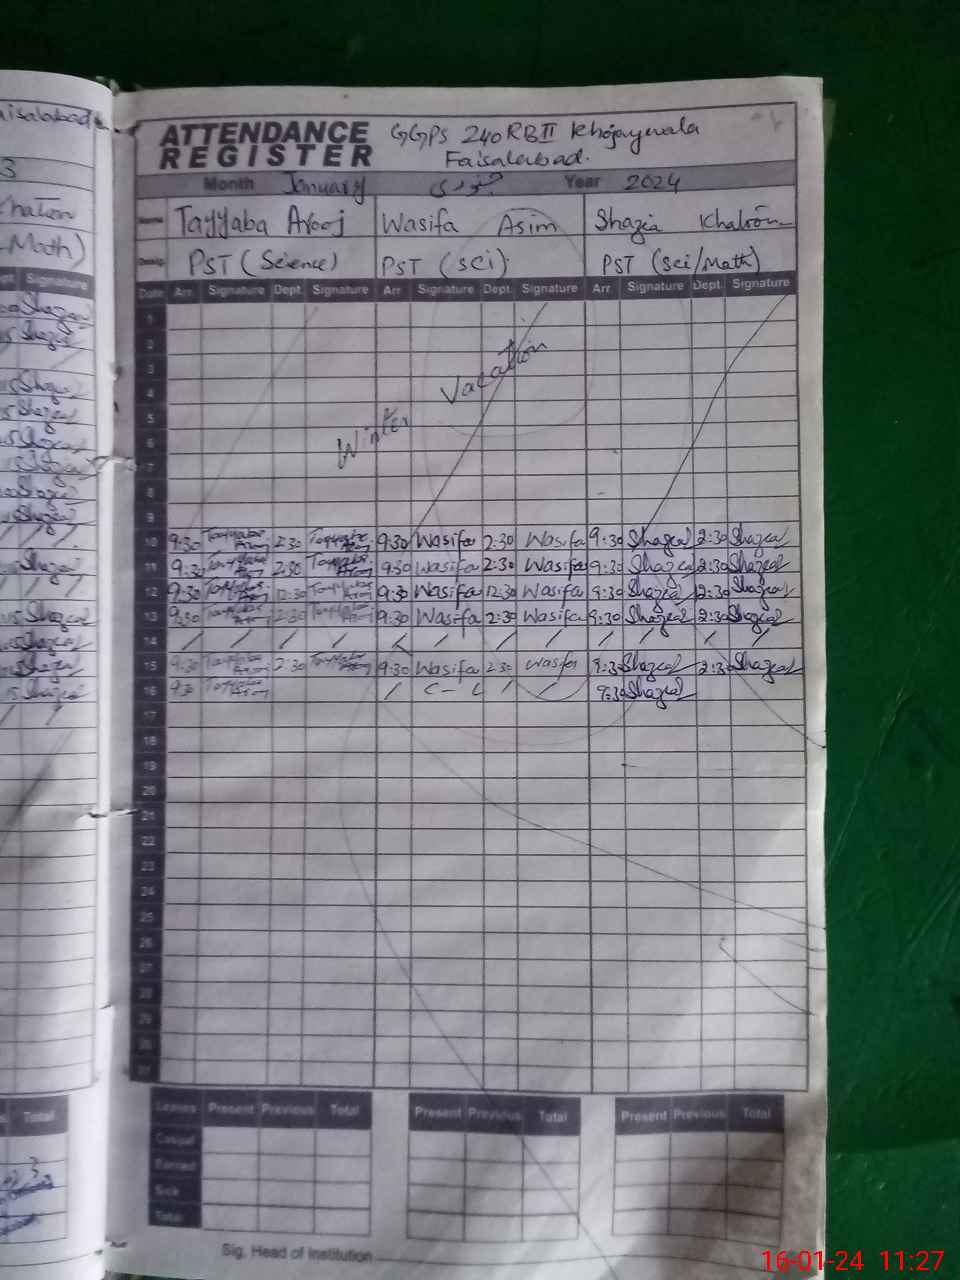 aisalabad
3
Khatoon
-Math)
Signature
ATTENDANCE GGPS 240RBII Khojaywala
REGISTER Faisalabad.
Month January جنوری Year 2024
Name Tayyaba Arooj Wasifa Asim Shazia Khatoon
Desig: PST (Science) PST (sci) PST (sci/Math)
Date Arr. Signature Dept. Signature Arr. Signature Dept. Signature Arr. Signature Dept. Signature
1
2
3
4
5
6
7
8
9
Winter Vacation
10 9:30 Tayyaba Arooj 2:30 Tayyaba Arooj 9:30 Wasifa 2:30 Wasifa 9:30 Shazia 2:30 Shazia
11 9:30 Tayyaba Arooj 2:30 Tayyaba Arooj 9:30 Wasifa 2:30 Wasifa 9:30 Shazia 2:30 Shazia
12 9:30 Tayyaba Arooj 12:30 Tayyaba Arooj 9:30 Wasifa 12:30 Wasifa 9:30 Shazia 2:30 Shazia
13 9:30 Tayyaba Arooj 2:30 Tayyaba Arooj 9:30 Wasifa 2:30 Wasifa 9:30 Shazia 2:30 Shazia
14 / / / / / / / / / / / /
15 9:30 Tayyaba Arooj 2:30 Tayyaba Arooj 9:30 Wasifa 2:30 Wasifa 9:30 Shazia 2:30 Shazia
16 9:30 Tayyaba Arooj / C-L / / 9:30 Shazia
17
18
19
20
21
22
23
24
25
26
27
28
29
30
31
Total
Leaves Present Previous Total Present Previous Total Present Previous Total
Casual
Earned
Sick
Total
Sig. Head of Institution
16-01-24 11:27